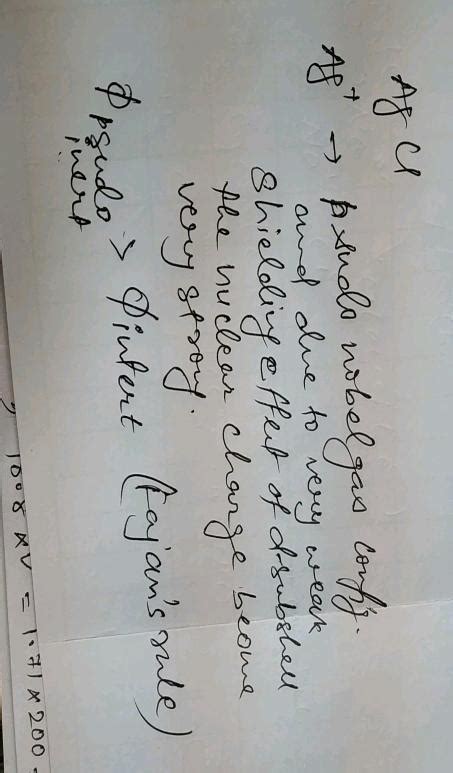 Ag Cl
Ag⁺ → psudo nobel gas config.
and due to very weak
shielding effect of d-subshell
the nuclear charge become
very strong.
Φ psudo inert > Φ intert (Fajan's rule)
1008 × V = 1.71 × 200